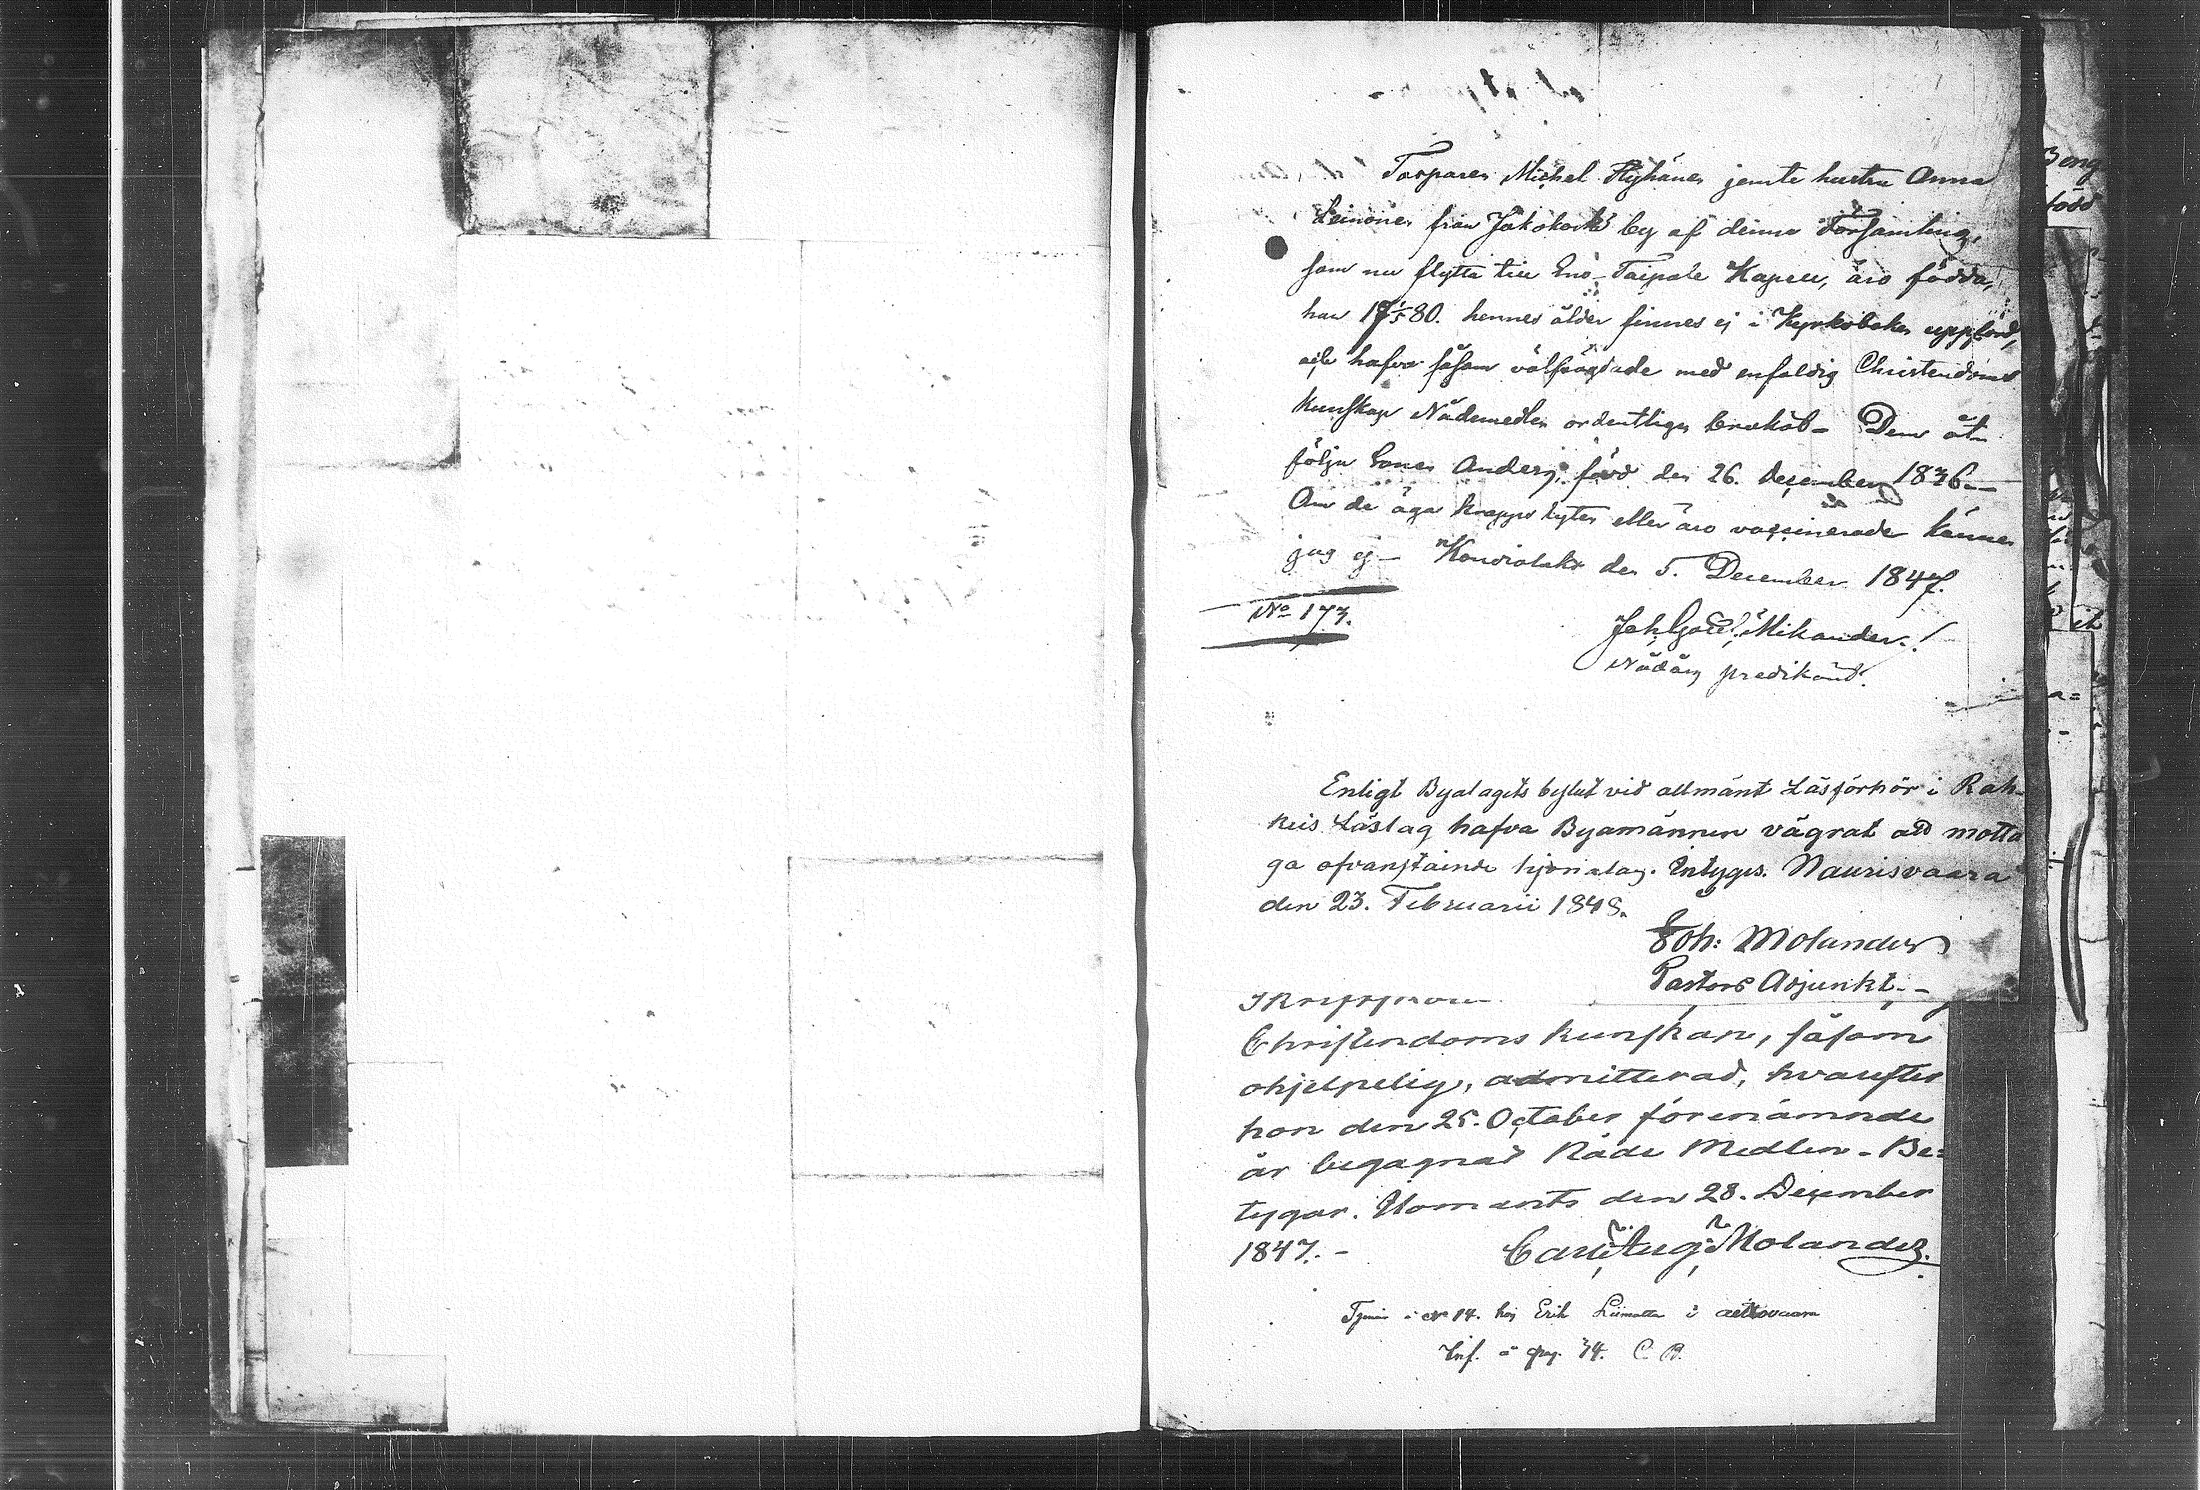 Torparen Michel Ryhänen jemte hustru Anna
Leinonen från Jakokoski by af denna Församling,
som nu flytta till Eno-Taipale Kapell, äro födda,
han 17 1/5 80. hennes ålder finnes ej i Kyrkoboken uppförd,
hafva såsom välfrägdade med enfaldig Christendoms
kunskap Nådemedlen ordentligen brukat- Dem åt-
följa Sonen Anders, född den 26. December 1836.-
Om de äga koppor eller äro vaccinerade känner
jag ej- Kontiolaks den 5. December 1847.
No 173.
Joh. Mikander.
Nådårs predikand.
Enligt Byalagets beslut vid allmänt Läsförhör i Rah-
keis Läslag hafva Byamännen vägrat att motta
ga ofvanstående hjonalag. Intygas. Naurisvaara
den 23. Februarii 1848.
Joh: Molander
Pastors Adjunkt.-
Christendoms kunskap, såsom
ohjelpelig, admitterad, hvarefter
hon den 25. October förenämnde
år begagnat Nåde Medlen. Be=
tygar. Ilomants den 28. December
1847.-
Carl Aug: Molander.
Tjenar i No 14. hos Erik Liimatta i
Inf. å pag. 34. C. B.
Beng
född